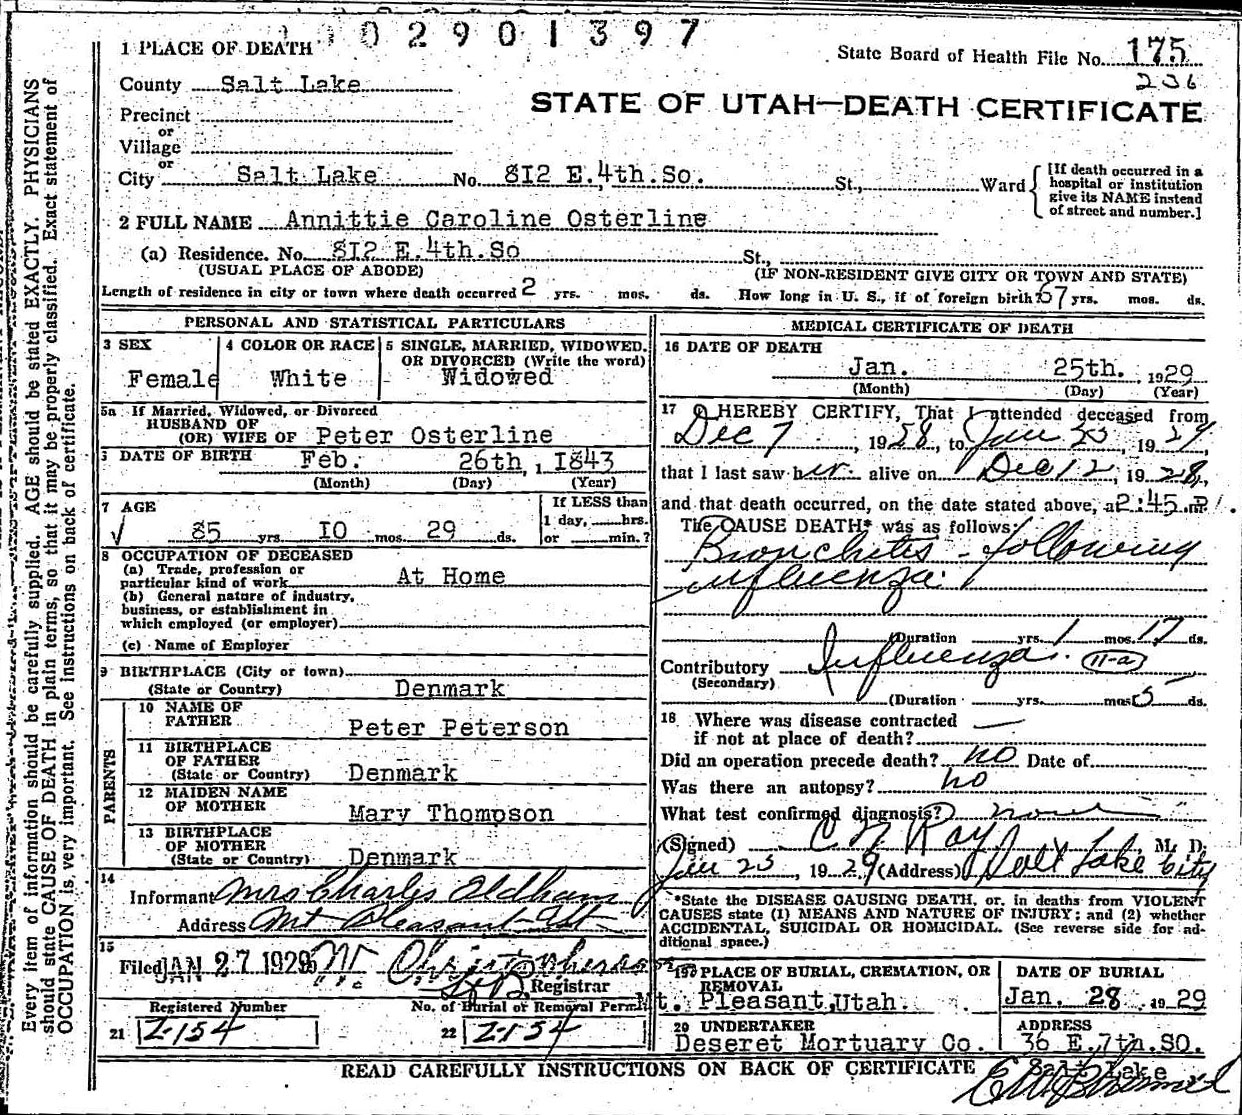 02901397
1 PLACE OF DEATH
State Board of Health File No. 175
236
County Salt Lake
STATE OF UTAH—DEATH CERTIFICATE
Precinct
or
Village
or
City Salt Lake No. 812 E. 4th. So. St., Ward
[If death occurred in a hospital or institution give its NAME instead of street and number.]
2 FULL NAME Annittie Caroline Osterline
(a) Residence. No. 812 E. 4th. So St.,
(USUAL PLACE OF ABODE) (IF NON-RESIDENT GIVE CITY OR TOWN AND STATE)
Length of residence in city or town where death occurred 2 yrs. mos. ds. How long in U. S., if of foreign birth? 67 yrs. mos. ds.
PERSONAL AND STATISTICAL PARTICULARS
3 SEX
Female
4 COLOR OR RACE
White
5 SINGLE, MARRIED, WIDOWED, OR DIVORCED (Write the word)
Widowed
5a If Married, Widowed, or Divorced
HUSBAND OF
(OR) WIFE OF Peter Osterline
6 DATE OF BIRTH Feb. 26th, 1843
(Month) (Day) (Year)
7 AGE
85 yrs. 10 mos. 29 ds.
If LESS than
1 day, hrs.
or min.?
8 OCCUPATION OF DECEASED
(a) Trade, profession or
particular kind of work At Home
(b) General nature of industry,
business, or establishment in
which employed (or employer)
(c) Name of Employer
9 BIRTHPLACE (City or town)
(State or Country) Denmark
PARENTS
10 NAME OF
FATHER Peter Peterson
11 BIRTHPLACE
OF FATHER
(State or Country) Denmark
12 MAIDEN NAME
OF MOTHER Mary Thompson
13 BIRTHPLACE
OF MOTHER
(State or Country) Denmark
14
Informant Mrs Charles Oldham
Address Mt Pleasant Ut
15
Filed JAN 27 1929
Registrar
Registered Number No. of Burial or Removal Permit
21 Z-154 22 Z-154
MEDICAL CERTIFICATE OF DEATH
16 DATE OF DEATH
Jan. 25th. 1929
(Month) (Day) (Year)
17 I HEREBY CERTIFY, That I attended deceased from
Dec 7, 1928, to Jan 25, 1929,
that I last saw her alive on Dec 12, 1928,
and that death occurred, on the date stated above, at 2:45 P.m.
The CAUSE DEATH* was as follows:
Bronchites - following
influenza.
(Duration yrs. 1 mos. 17 ds.
Contributory Influenza. 11-a
(Secondary)
(Duration yrs. mos. 5 ds.
18 Where was disease contracted
if not at place of death?
Did an operation precede death? no Date of
Was there an autopsy? no
What test confirmed diagnosis? none
(Signed) C N Ray, M. D.
Jan 25, 1929 (Address) Salt Lake City
*State the DISEASE CAUSING DEATH, or, in deaths from VIOLENT
CAUSES state (1) MEANS AND NATURE OF INJURY; and (2) whether
ACCIDENTAL, SUICIDAL OR HOMICIDAL. (See reverse side for ad-
ditional space.)
19 PLACE OF BURIAL, CREMATION, OR REMOVAL
Mt. Pleasant, Utah.
DATE OF BURIAL
Jan. 28 1929
20 UNDERTAKER
Deseret Mortuary Co.
ADDRESS
36 E. 7th. SO.
Salt Lake
READ CAREFULLY INSTRUCTIONS ON BACK OF CERTIFICATE
Every item of information should be carefully supplied. AGE should be stated EXACTLY. PHYSICIANS
should state CAUSE OF DEATH in plain terms, so that it may be properly classified. Exact statement of
OCCUPATION is very important. See instructions on back of certificate.